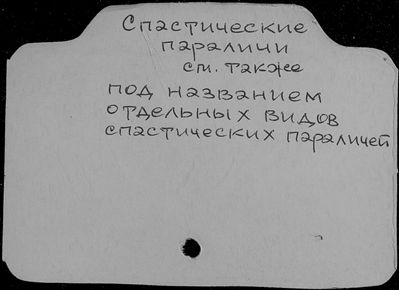 Спастические
параличи
см. также
под названием
отдельных видов
спастических параличей